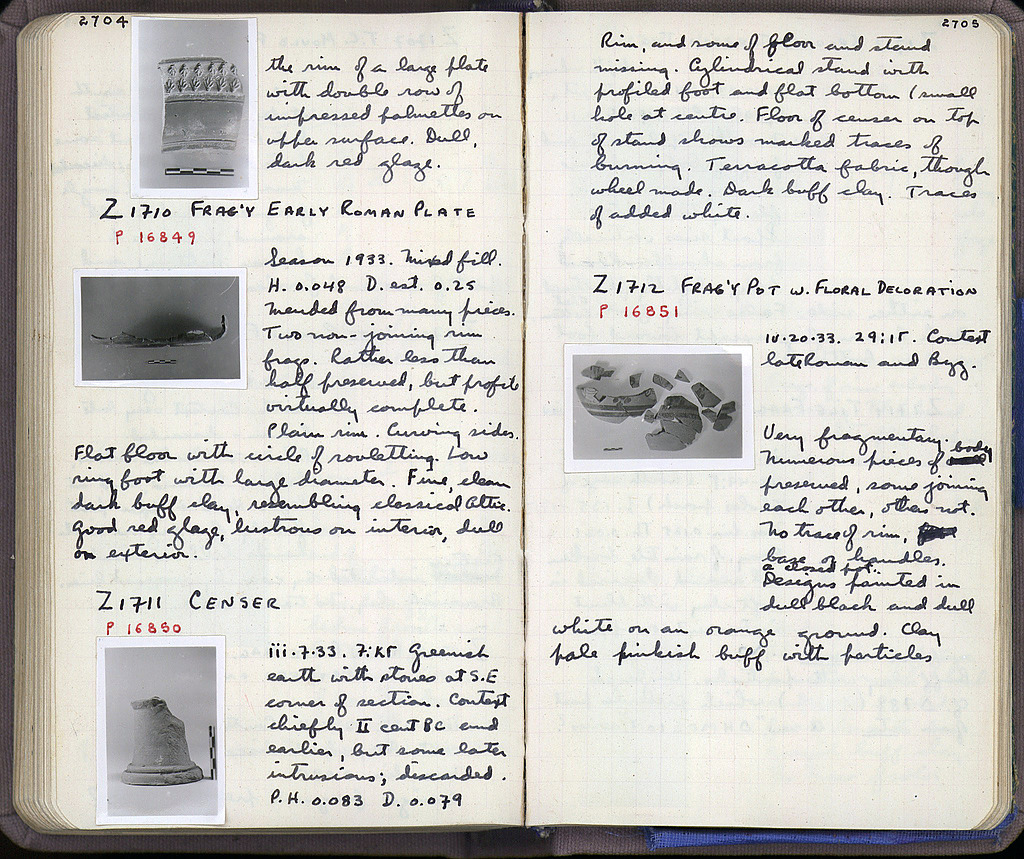 2704
the rim of a large plate
with double row of
impressed palmettes on
upper surface. Dull,
dark red glaze.
Z 1710 FRAG'Y EARLY ROMAN PLATE
P 16849
Season 1933. Mixed fill.
H. 0.048 D. est. 0.25
Mended from many pieces.
Two non-joining rim
frags. Rather less than
half preserved, but profile
virtually complete.
Plain rim. Curving sides.
Flat floor with circle of rouletting. Low
ring foot with large diameter. Fine, clean
dark buff clay, resembling classical Attic.
Good red glaze, lustrous on interior, dull
on exterior.
Z 1711 CENSER
P 16850
iii.7.33. 7:ΚΓ Greenish
earth with stones at S.E
corner of section. Context
chiefly II cent BC and
earlier, but some later
intrusions; discarded.
P.H. 0.083 D. 0.079
2705
Rim, and some of floor and stand
missing. Cylindrical stand with
profiled foot and flat bottom (small
hole at centre. Floor of censer on top
of stand shows marked traces of
burning. Terracotta fabric, though
wheel made. Dark buff clay. Traces
of added white.
Z 1712 FRAG'Y POT W. FLORAL DECORATION
P 16851
iv.20.33. 29:ΙΓ. Context
late Roman and Byz.
Very fragmentary.
Numerous pieces of body
preserved, some joining
each other, others not.
No trace of rim,
base or handles.
a closed pot.
Designs painted in
dull black and dull
white on an orange ground. Clay
pale pinkish buff with particles